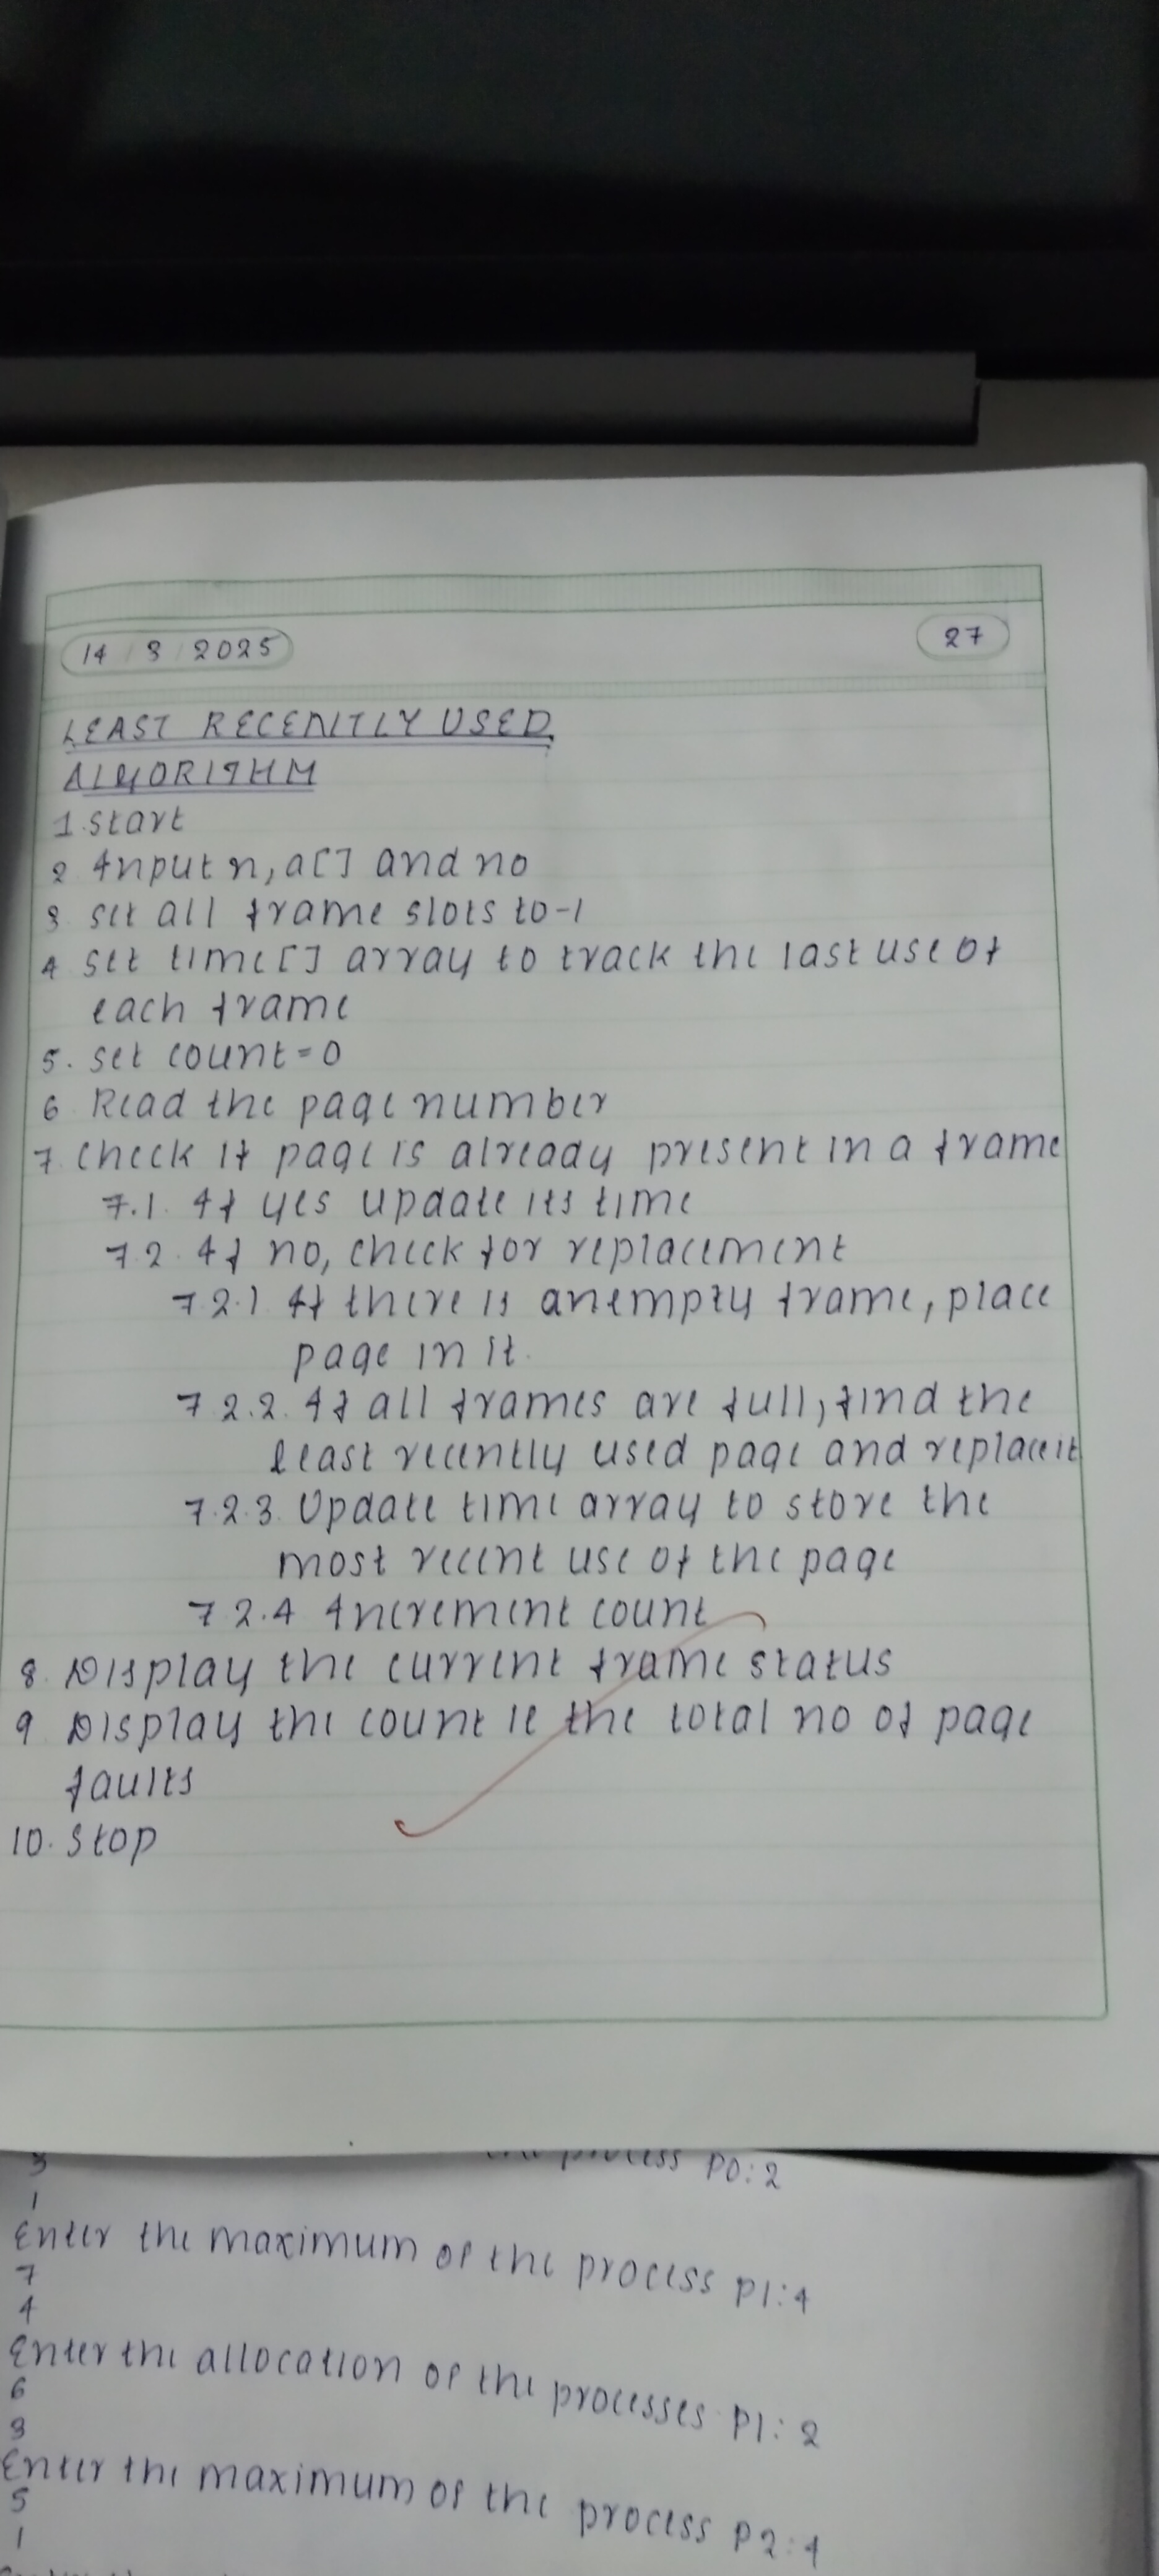 14 / 3 / 2025
27
LEAST RECENTLY USED
ALGORITHM
1. start
2 Input n, a[] and no
3. set all frame slots to -1
4 set time[] array to track the last use of
each frame
5. set count = 0
6 Read the page number
7. check if page is already present in a frame
7.1. If yes update its time
7.2. If no, check for replacement
7.2.1 If there is an empty frame, place
page in it.
7.2.2. If all frames are full, find the
least recently used page and replace it
7.2.3. Update time array to store the
most recent use of the page
7.2.4 Increment count
8. Display the current frame status
9 Display the count ie the total no of page
faults
10. Stop
3
process P0: 2
1
Enter the maximum of the process P1: 4
7
4
Enter the allocation of the processes P1: 2
6
3
Enter the maximum of the process P2: 4
5
1